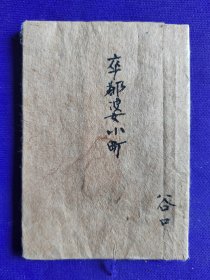 卒都婆小町
谷口